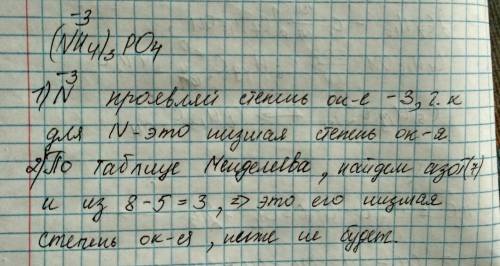 -3
(NH4)3PO4
-3
1) N проявляй степень ок-е -3, т.к
для N - это низшая степень ок-я.
2) По таблице Менделеева, найдем азот(7)
и из 8-5=3, => это его низшая
степень ок-ея, ниже не будет.